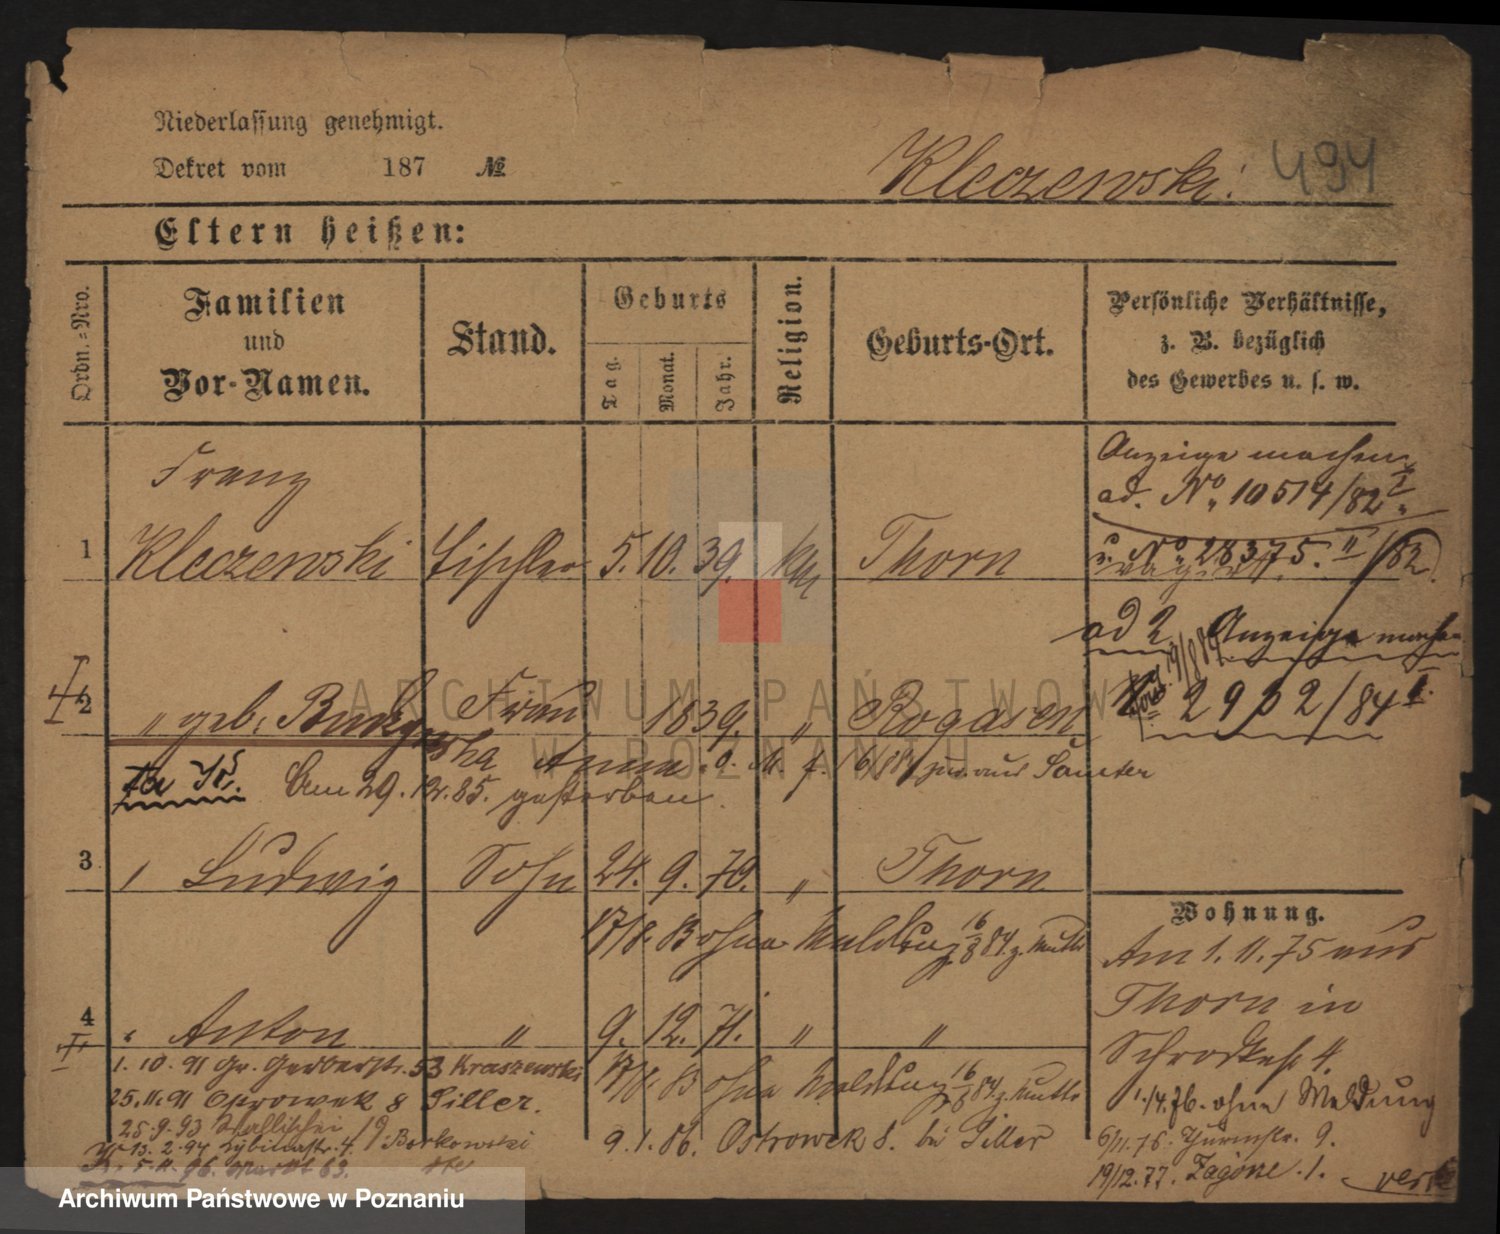 Niederlassung genehmigt.
Dekret vom 187 №
Kleczewski. 494
Eltern heißen:
Ordn.-Nro.
Familien
und
Vor-Namen.
Stand.
Geburts
Tag.
Monat.
Jahr.
Religion.
Geburts-Ort.
Persönliche Verhältnisse,
z. B. bezüglich
des Gewerbes u. s. w.
Franz
1 Kleczewski Tischler 5. 10. 39. kth Thorn
Anzeige machen
ad. No. 10514/82 I.
u. No. 28375. II/82.
2 " geb. Frau 1839. " Rogasen
ad 2 Anzeige machen
2902/84 I.
Anna
Am 29. 12. 85. gestorben.
3 Ludwig Sohn 24. 9. 70. " Thorn
17/8. 83 ohne Meldung 16/8 84. z. Mutter
4 " Anton " 9. 12. 71. " "
17/8. 83 ohne Meldung 16/8 84. z. Mutter
1. 10. 91 Gr. Gerberstr. 53 Kraszewski
25. 11. 91 Ostrowek 8 Siller.
25. 9. 93
15. 2. 94 4. Borkowski
5. 11. 96. Markt 63.
9. 1. 86. Ostrowek 8. bei Siller
Wohnung.
Am 1. 11. 75 aus
Thorn in
Schrodkastr 4.
1./4. 76. ohne Meldung
6/11. 76. Thurmstr. 9.
19/12. 77. Zagorze. 1.
ARCHIWUM PAŃSTWOWE
W POZNANIU
Archiwum Państwowe w Poznaniu